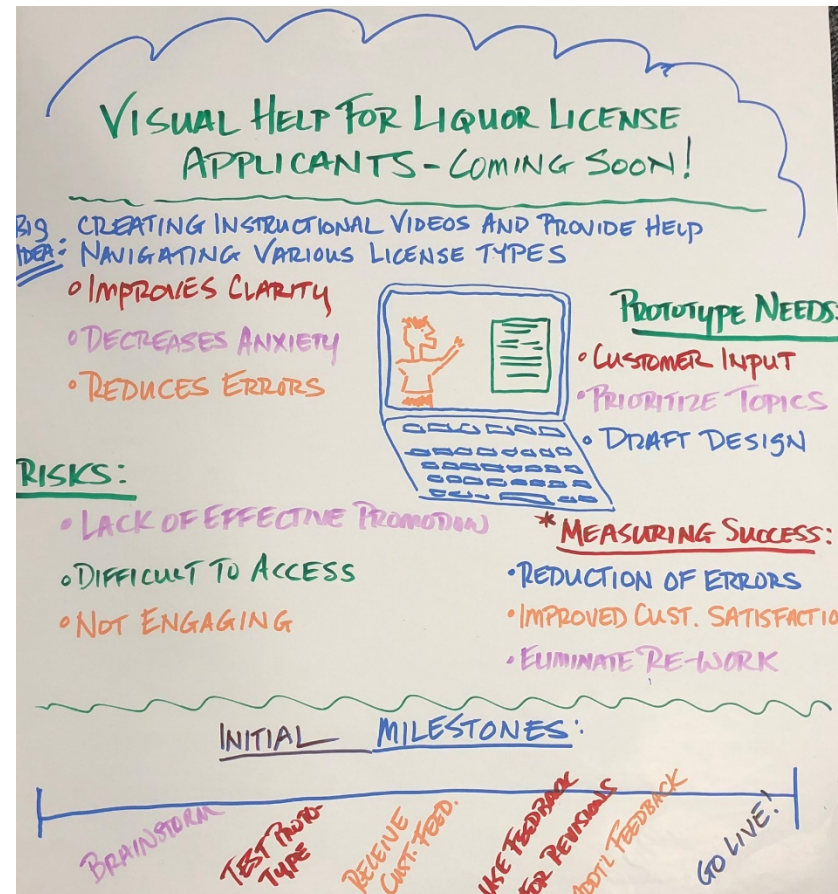 VISUAL HELP FOR LIQUOR LICENSE
APPLICANTS - COMING SOON!
BIG IDEA: CREATING INSTRUCTIONAL VIDEOS AND PROVIDE HELP
NAVIGATING VARIOUS LICENSE TYPES
• IMPROVES CLARITY
• DECREASES ANXIETY
• REDUCES ERRORS
PROTOTYPE NEEDS:
• CUSTOMER INPUT
• PRIORITIZE TOPICS
• DRAFT DESIGN
RISKS:
• LACK OF EFFECTIVE PROMOTION
• DIFFICULT TO ACCESS
• NOT ENGAGING
* MEASURING SUCCESS:
• REDUCTION OF ERRORS
• IMPROVED CUST. SATISFACTIO
• ELIMINATE RE-WORK
INITIAL MILESTONES:
BRAINSTORM
TEST PROTO-
TYPE
RECEIVE
CUST. FEED.
USE FEEDBACK
FOR REVISIONS
ADDT'L FEEDBACK
GO LIVE!